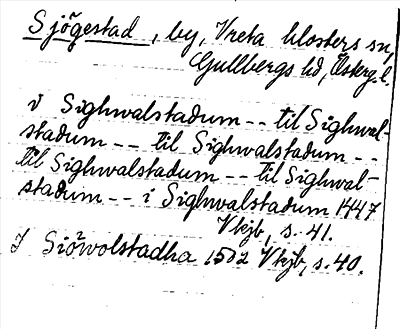 Sjögestad, by, Vreta klosters sn,
Gullbergs hd, Österg. l.
i Sighwalstadum -- til Sighwal-
stadum -- til Sighwalstadum --
til Sighwalstadum -- til Sighwal-
stadum -- i Sighwalstadum 1447
Vkjb, s. 41.
I Siö²wolstadha 1502 Vkjb, s. 40.